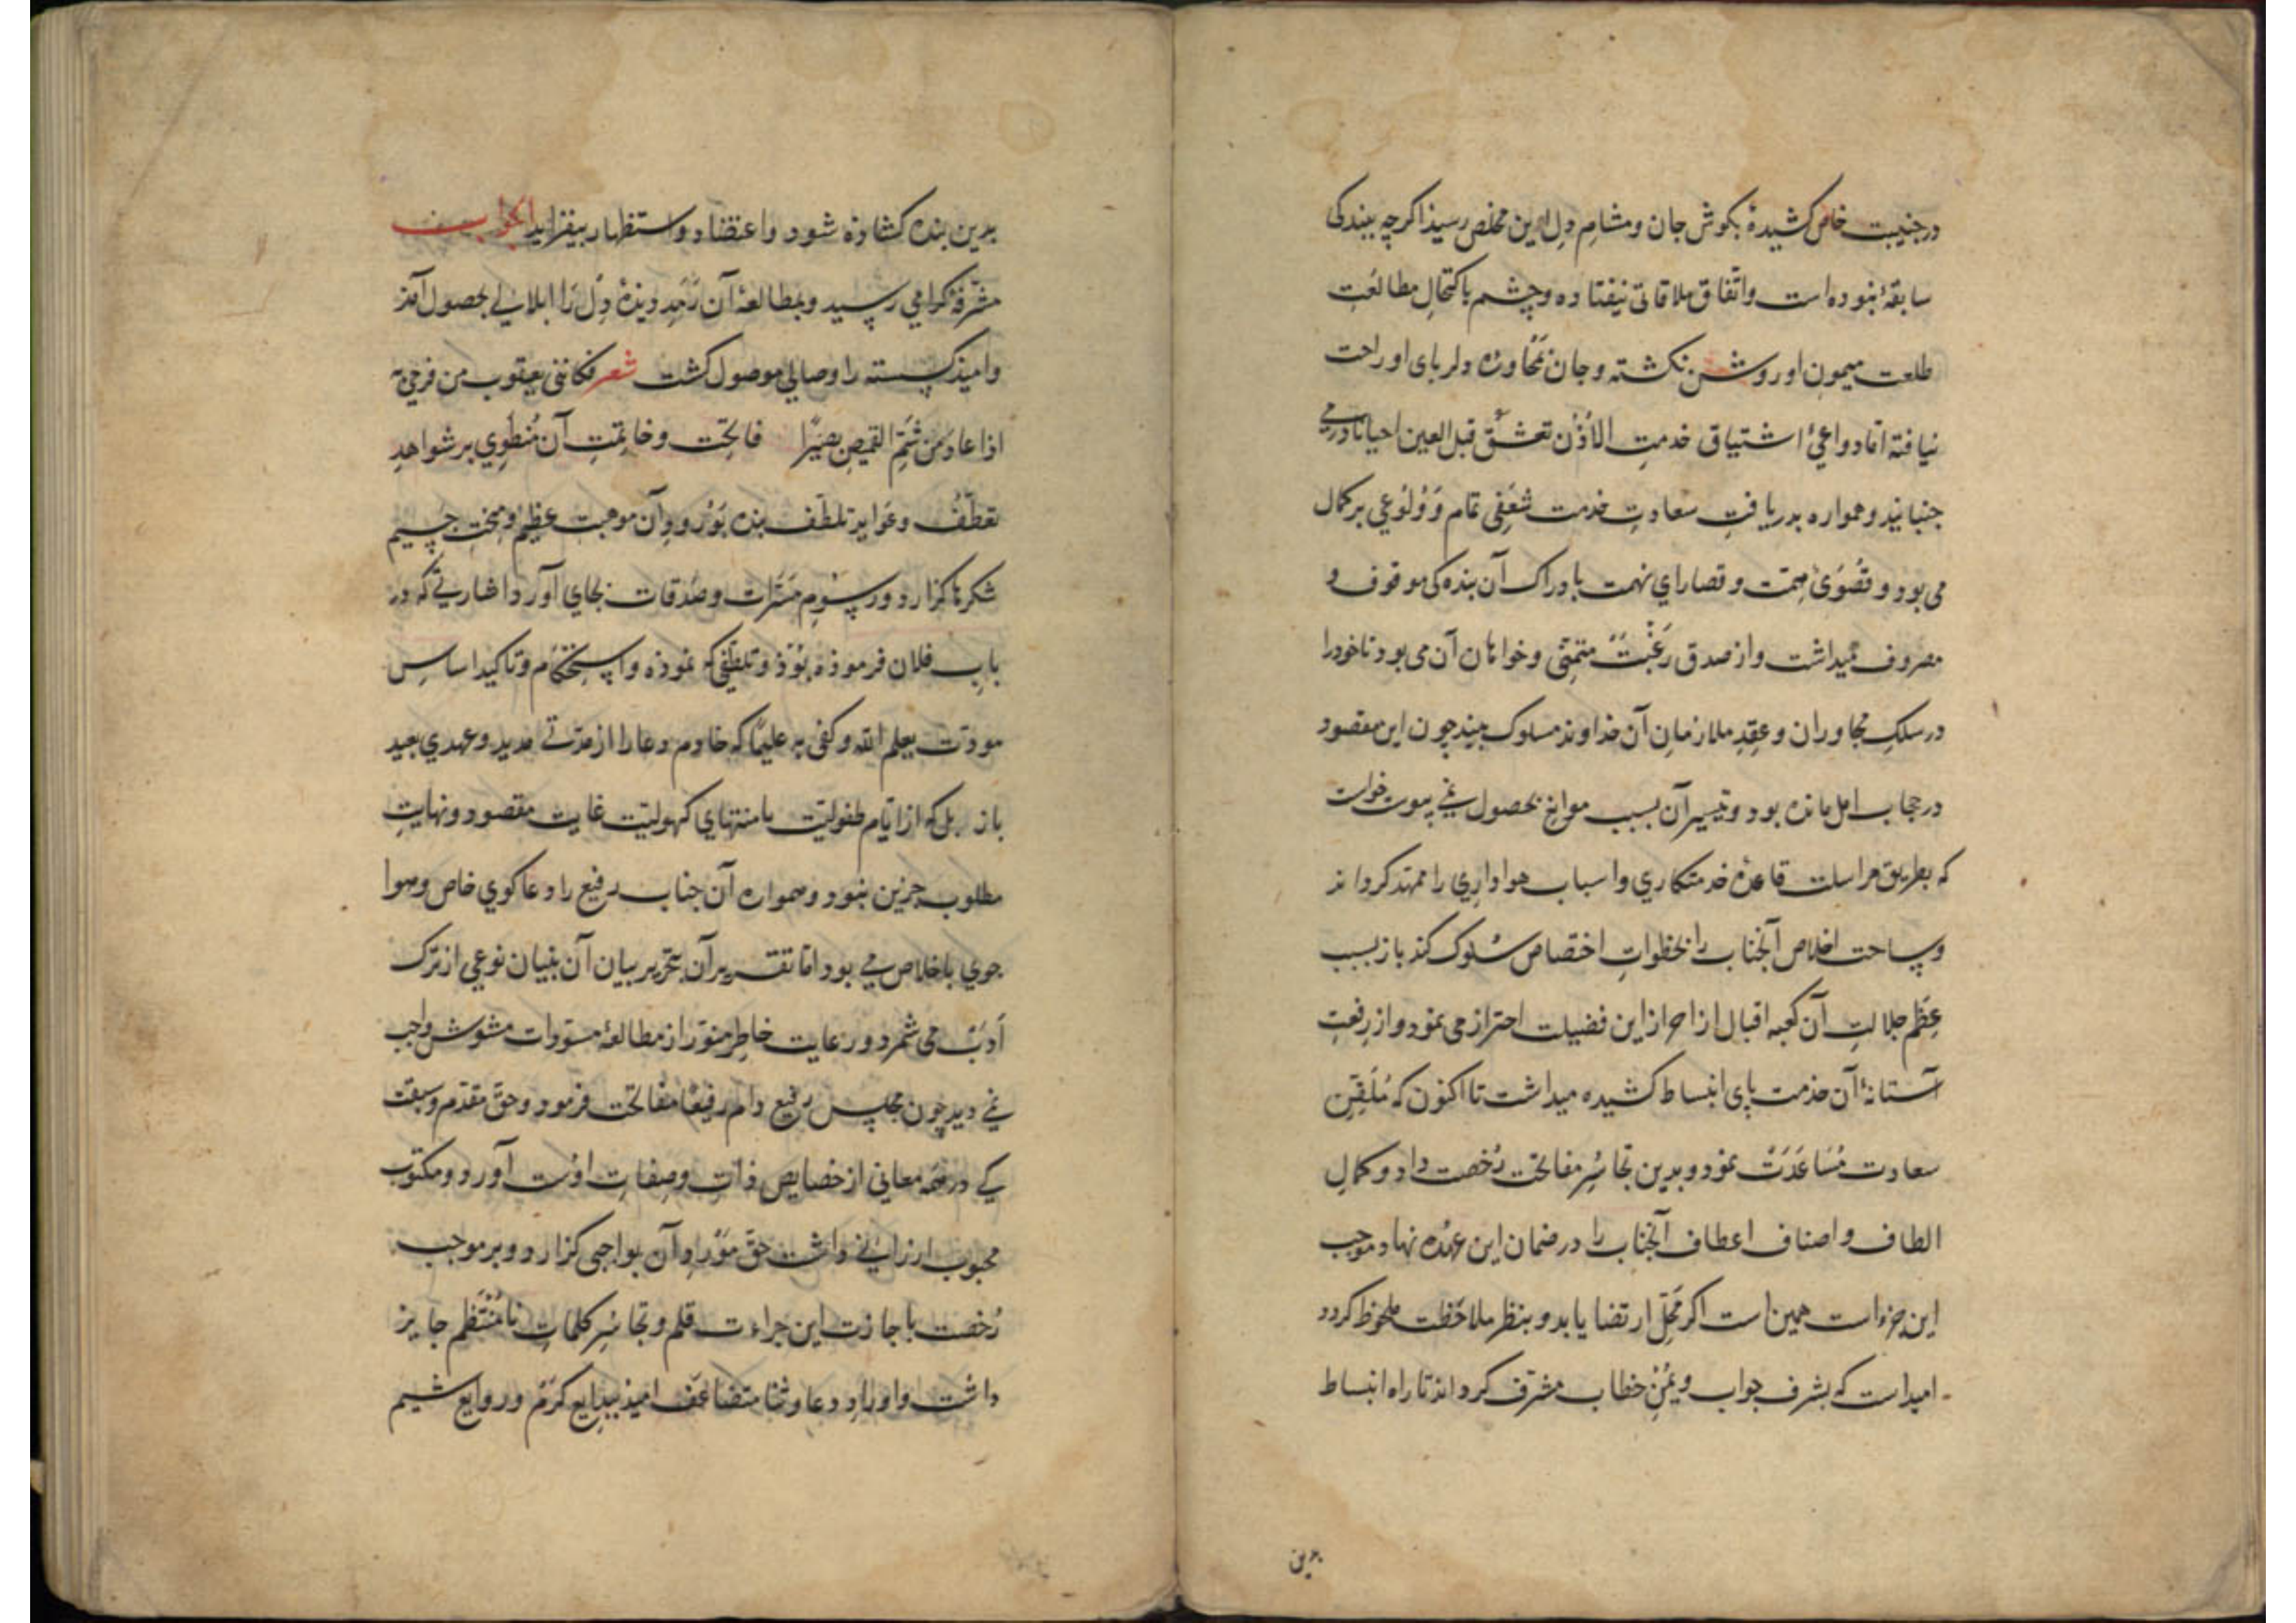 در جنیبت خاص کشیدهٔ بکوش جان و مشامِ دل این مخلص رسیذ اکرچه ببندکی
سابقهٔ نبوده است و اتّفاق ملاقاتی نیفتاده و چشم باکتحالِ مطالعت
طلعت میمون او روشن نکشته و جان بمحاورهٔ دلربای او راحت
نیافته امّا دواعیٔ اشتیاق خدمتِ الاذُن تعشقُ قبل العین احیانا درمی
جنبانید و همواره بدریافتِ سعادتِ خدمت شعَفی تمام وَ وُلُوعی بر کمال
می بود و قُصْوَیٰ همّت و قصارای نهمت بادراک آن بنده کی موقوف و
مصروف میداشت و از صدق رَغْبَتْ متمنّی و خواهان آن می بود تا خود را
در سلکِ مجاوران و عِقدِ ملازمانِ آن خداوند مسلوک بیند چون این مقصود
در حجاب امل مانده بود و تیسیر آن بسبب موانع بحصول نمی پیوست خواست
که بطریق مراسلت قاعدهٔ خدمتکاری و اسباب هواداری را ممهّد کرداند
و ساحت اخلاص آنجناب را بخطواتِ اختصاص سُلوک کند باز بسبب
عِظَمِ جلالتِ آن کعبه اقبال از احراز این فضیلت احتراز می نمود و از رفعتِ
آستانهٔ آن خدمت پای انبساط کشیده میداشت تا اکنون که مُلَقِّنِ
سعادت مُسَاعَدَتْ نمود و بدین تجاسُرِ مفاتحت رُخصت داد و کمالِ
الطاف و اصناف اعطاف آنجناب را در ضمان این عُهده نهاد موجب
این جراءت همین است اکر مَحَلِّ ارتضا یابد و بنظر ملاحَظت ملحوظ کردد
امید است که بشرف جواب و یُمْنِ خطاب مشرّف کرداند تا راه انبساط
بدین
بدین بنده کشاذه شود و اعتضاد و استظهار بیفزاید الجواب
مشرّفهٔ کرامی رسید و بمطالعهٔ آن رَمَدِ دیذهٔ دِل را ابلالی بحصول آمذ
و امیذ کسسته را وصالی موصول کشت شعر فکاننی یعقوب من فرحی به
اذا عاد من شمّ القمیصِ بصیرًا فاتحت و خاتمتِ آن مُنطوِی بر شواهدِ
تعطّف و عَوایدِ تلطّف بنده بوُرُودِ آن موهبت عظیم و منحتِ جسیم
شکرها کزارد و رسوُم مَبَرّات و صَدقات بجای آورد اشارتی که در
بابِ فلان فرموذه بُوْذ و تلطّفی که نموذه و استحکام و تاکید اساسِ
مودّت یعلم الله و کفی به علیمًا که خادم دعا را از مدّتی مدید و عهدی بعید
باز بل که از ایّام طفولیّت تا منتهای کهولیّت غایت مقصود و نهایتِ
مطلوب جز این نبود و همواره آن جناب رفیع را دعاکوی خاص و هوا
جوی با اخلاص می بود امّا تقریر آن بتحریر بیان آن بنیان نوعی از ترک
اَدَب می شمرد و رعایت خاطر منوّر از مطالعهٔ مسوّدات مشوش واجب
می دید چون مجلس رفیع دام رفیعًا مفاتحت فرمود و حقّ مقدّم و سبقت
کی در همه معانی از خصایص ذات و صفاتِ اوست آورد و مکتوب
محبوب ارزانی داشت حقّ موْردِ آن بواجبی کزارد و بر موجب
رُخصت باجازت این جراءت قلم و تجاسُرِ کلماتِ نامُنْتَظَم جایز
داشت و اورادِ دعا و ثنا متضاعَف امیذ ببدایع کَرَمْ و روایع شیم